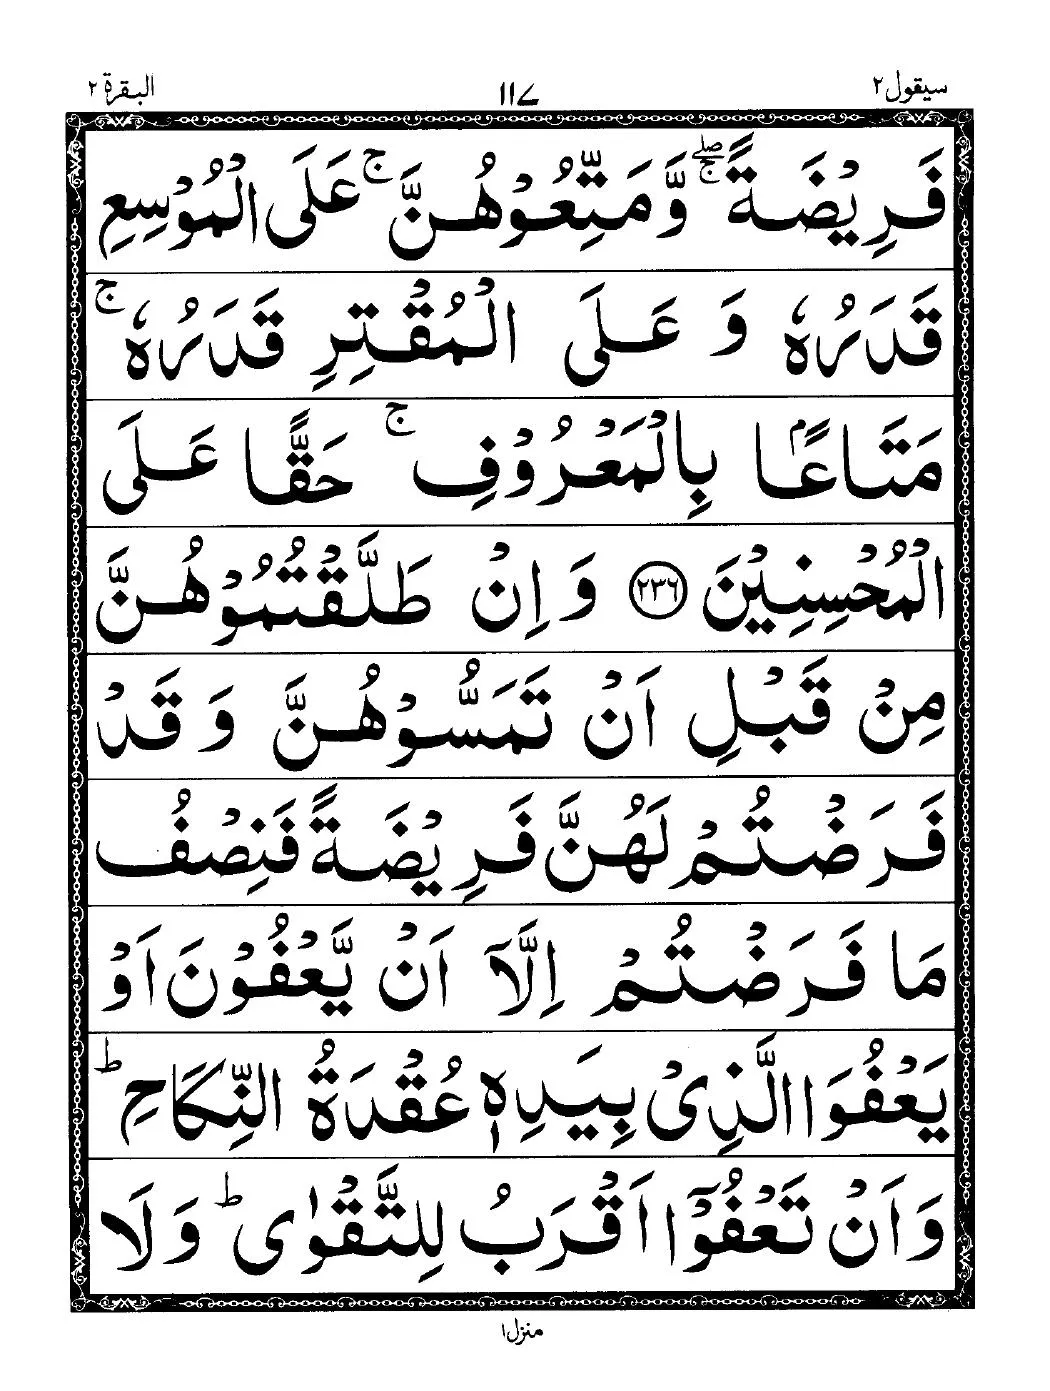 سيقول ٢ ١١٧ البقرة ٢
فَرِيْضَةً ۖۚ وَّمَتِّعُوْهُنَّ ۚ عَلَى الْمُوْسِعِ
قَدَرُهٗ وَ عَلَى الْمُقْتِرِ قَدَرُهٗ ۚ
مَتَاعًاۢ بِالْمَعْرُوْفِ ۚ حَقًّا عَلَى
الْمُحْسِنِيْنَ ﴿٢٣٦﴾ وَ اِنْ طَلَّقْتُمُوْهُنَّ
مِنْ قَبْلِ اَنْ تَمَسُّوْهُنَّ وَ قَدْ
فَرَضْتُمْ لَهُنَّ فَرِيْضَةً فَنِصْفُ
مَا فَرَضْتُمْ اِلَّاۤ اَنْ يَّعْفُوْنَ اَوْ
يَعْفُوَا الَّذِىْ بِيَدِهٖ عُقْدَةُ النِّكَاحِ ؕ
وَ اَنْ تَعْفُوْۤا اَقْرَبُ لِلتَّقْوٰى ؕ وَ لَا
منزل ١